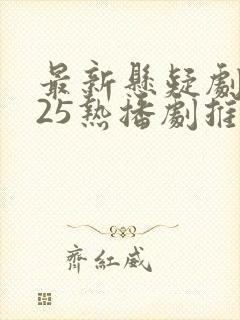 最新懸疑劇
25熱播劇推
齊紅威